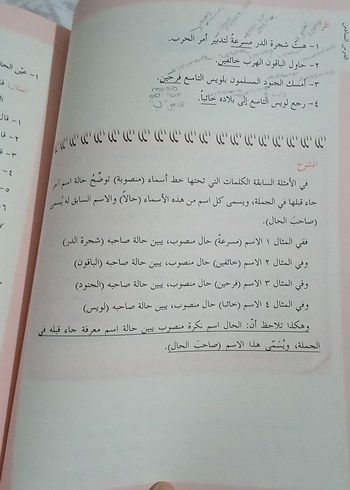 الدرس السادس
١- هبَّت شجرة الدر مسرعةً لتدبير أمر الحرب.
٢- حاول الباقون الهرب خائفين.
٣- أمسك الجنود المسلمون بلويس التاسع فرحين.
٤- رجع لويس التاسع إلى بلاده خائباً.
الشرح
في الأمثلة السابقة الكلمات التي تحتها خط أسماء (منصوبة) توضِّحُ حالة اسم
جاء قبلها في الجملة، ويسمى كل اسم من هذه الأسماء (حالاً) والاسم السابق له يُسمى
(صاحبَ الحال).
ففي المثال ١ الاسم (مسرعةً) حال منصوب، يبين حالة صاحبه (شجرة الدر)
وفي المثال ٢ الاسم (خائفين) حال منصوب، يبين حالة صاحبه (الباقون)
وفي المثال ٣ الاسم (فرحين) حال منصوب، يبين حالة صاحبه (الجنود)
وفي المثال ٤ الاسم (خائبا) حال منصوب، يبين حالة صاحبه (لويس)
وهكذا تلاحظ أنّ: الحال اسم نكرة منصوب يبين حالة اسم معرفة جاء قبله في
الجملة، ويُسَمَّى هذا الاسم (صاحبَ الحال).